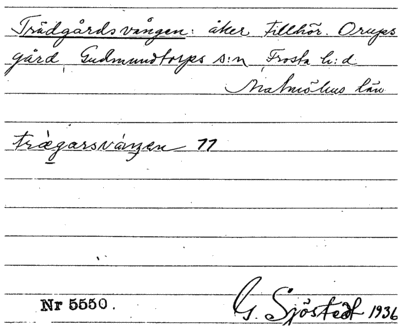 Trädgårdsvången: åker tillhör. Orups
gård, Gudmundtorps s:n, Frosta h:d
Malmöhus län
trægarsvåŋen 11
Nr 5550.
G. Sjöstedt 1936